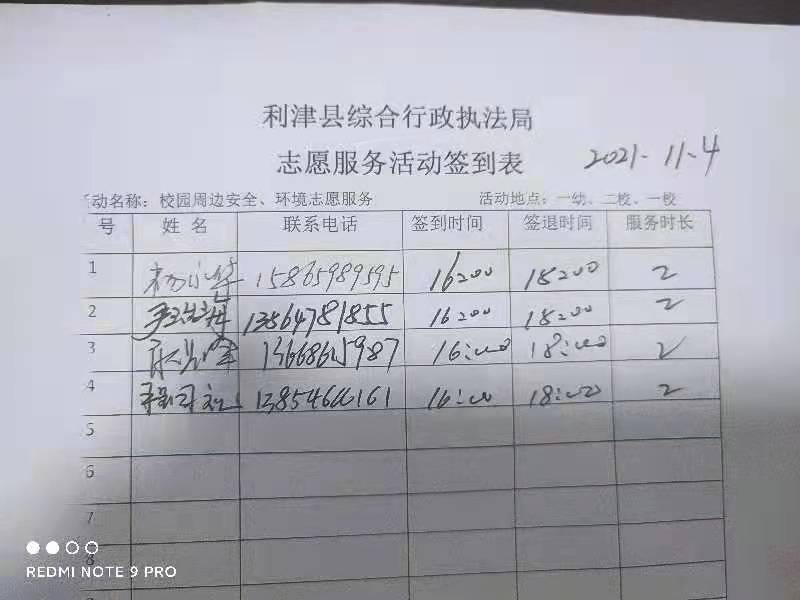 利津县综合行政执法局
志愿服务活动签到表 2021-11-4
活动名称：校园周边安全、环境志愿服务 活动地点：一幼、二校、一校
号 姓 名 联系电话 签到时间 签退时间 服务时长
1 杨小华 15865989595 16:00 18:00 2
2 13564781855 16:00 18:00 2
3 16:00 18:00 2
4 16:00 18:00 2
5
6
7
8
REDMI NOTE 9 PRO